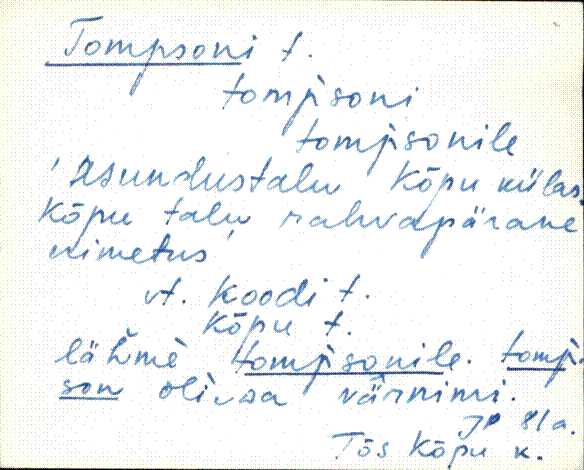 Tompsoni t.
tomp̀soni
tomp̀sonile
'Asundustalu Kõpu külas.
Kõpu talu rahvapärane
nimetus'
vt. Koodi t.
Kõpu t.
lähmè tomp̀sonile. tomp̀-
son oli_sa värnimi.
JP 81a.
Tõs Kõpu k.